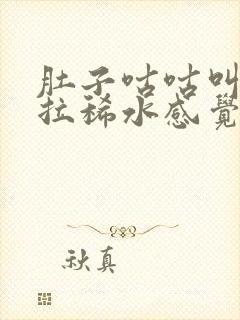 肚子咕咕叫
拉稀水感覺
秋真